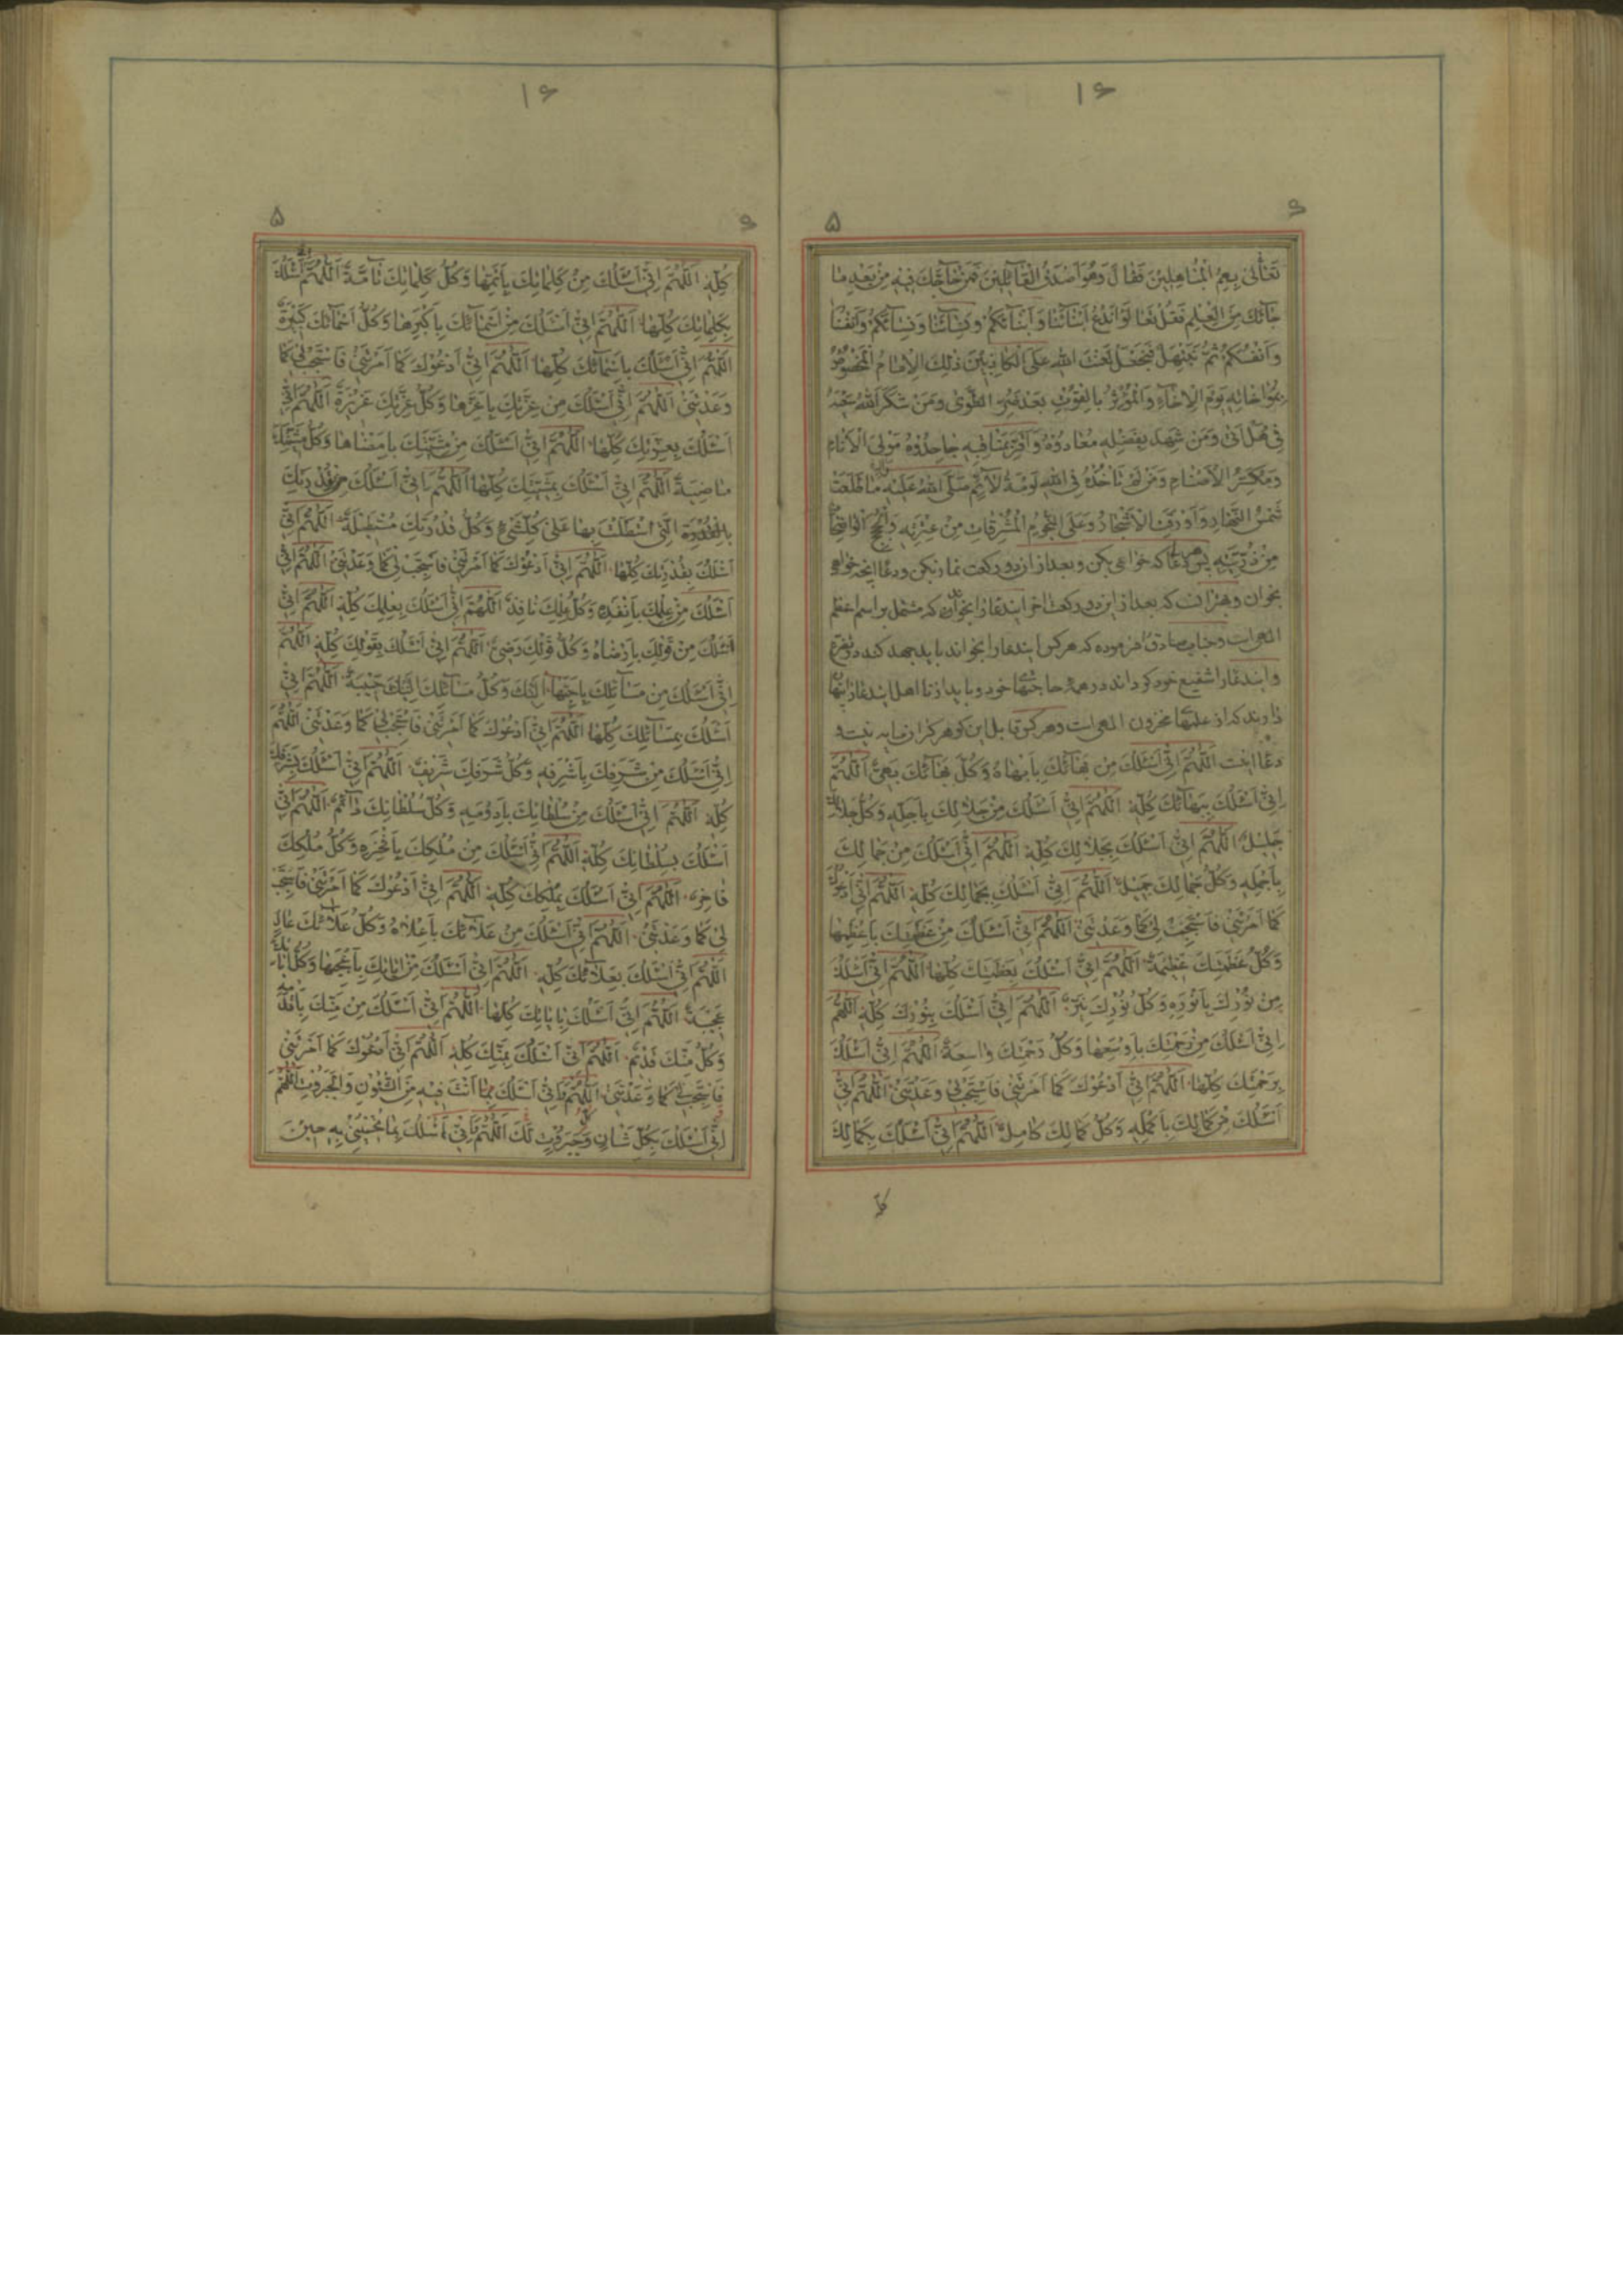 ۱۶
۶ ۵
تَعٰالىٰ بِعِمُ الْمُبٰاهِلِيْنَ فَقٰالَ وَهُوَ اَصْدَقُ الْقٰآئِلِيْنَ فَمَنْ حٰاجَّكَ فيٖهِ مِنْ بَعْدِ مٰا
جٰائَكَ مِنَ الْعِلْمِ فَقُلْ تَعٰالَوْا نَدْعُ اَبْنٰائَنٰا وَاَبْنٰائَكُمْ وَنِسٰائَنٰا وَنِسٰائَكُمْ وَاَنْفُسَنٰا
وَاَنْفُسَكُمْ ثُمَّ نَبْتَهِلْ فَنَجْعَلْ لَعْنَتَ اللهِ عَلَى الْكٰاذِبيٖنَ ذٰلِكَ الْاِمٰامُ الْمَخْصُوْصُ
بِمُوٰاخٰاتِهِ يَوْمَ الْاِخٰآءِ وَالْمُؤْثِرُ بِالْقُوْتِ بَعْدَ ضُرِّ الطَّوٰى وَمَنْ شَكَرَ اللهُ سَعْيَهُ
فيٖ هَلْ اَتٰى وَمَنْ شَهِدَ بِفَضْلِهِ مُعٰادُوْهُ وَاَقَرَّ بِمَنٰاقِبِهِ جٰاحِدُوْهُ مَوْلَى الْاَنٰامِ
وَمُكَسِّرُ الْاَصْنٰامِ وَمَنْ لَمْ تَاْخُذْهُ فِى اللهِ لَوْمَةُ لٰآئِمٍ صَلَّى اللهُ عَلَيْهِ وَاٰلِهِ مٰا طَلَعَتْ
شَمْسُ النَّهٰارِ وَاَوْرَقَتِ الْاَشْجٰارُ وَعَلَى النُّجُوْمِ الْمُشْرِقٰاتِ مِنْ عِتْرَتِهِ وَالْحُجَجِ الْوٰاضِحٰاتِ
مِنْ ذُرِّيَّتِهِ پس هر دعا که خواهی بکن و بعد از ان دو رکعت نماز بکن و دعا انچه خواهی
بخوان و بهتر ان که بعد از این دو رکعت اخر ایندعا را بخوان که مشتمل بر اسم اعظم
الهی است و جناب صادق فرموده که هر کس ایندعا را بخواند باید جهد کند در تضرع
و ایندعا را شفیع خود گرداند در همه حاجتها خود و باید از نا اهل ایندعا را پنهان
دارند که از علمهای مخزون الهی است و هر کس قابل این گوهر گران مایه نیست و
دعا اینست اَللّٰهُمَّ اِنّيٖ اَسْئَلُكَ مِنْ بَهٰائِكَ بِاَبْهٰاهُ وَكُلُّ بَهٰائِكَ بَهِىٌّ اَللّٰهُمَّ
اِنّيٖ اَسْئَلُكَ بِبَهٰائِكَ كُلِّهِ اَللّٰهُمَّ اِنّيٖ اَسْئَلُكَ مِنْ جَلٰالِكَ بِاَجَلِّهِ وَكُلُّ جَلٰالِكَ
جَليٖلٌ اَللّٰهُمَّ اِنّيٖ اَسْئَلُكَ بِجَلٰالِكَ كُلِّهِ اَللّٰهُمَّ اِنّيٖ اَسْئَلُكَ مِنْ جَمٰالِكَ
بِاَجْمَلِهِ وَكُلُّ جَمٰالِكَ جَميٖلٌ اَللّٰهُمَّ اِنّيٖ اَسْئَلُكَ بِجَمٰالِكَ كُلِّهِ اَللّٰهُمَّ اِنّيٖ اَدْعُوْكَ
كَمٰا اَمَرْتَنيٖ فَاسْتَجِبْ ليٖ كَمٰا وَعَدْتَنيٖ اَللّٰهُمَّ اِنّيٖ اَسْئَلُكَ مِنْ عَظَمَتِكَ بِاَعْظَمِهٰا
وَكُلُّ عَظَمَتِكَ عَظيٖمَةٌ اَللّٰهُمَّ اِنّيٖ اَسْئَلُكَ بِعَظَمَتِكَ كُلِّهٰا اَللّٰهُمَّ اِنّيٖ اَسْئَلُكَ
مِنْ نُوْرِكَ بِاَنْوَرِهِ وَكُلُّ نُوْرِكَ نَيِّرٌ اَللّٰهُمَّ اِنّيٖ اَسْئَلُكَ بِنُوْرِكَ كُلِّهِ اَللّٰهُمَّ
اِنّيٖ اَسْئَلُكَ مِنْ رَحْمَتِكَ بِاَوْسَعِهٰا وَكُلُّ رَحْمَتِكَ وٰاسِعَةٌ اَللّٰهُمَّ اِنّيٖ اَسْئَلُكَ
بِرَحْمَتِكَ كُلِّهٰا اَللّٰهُمَّ اِنّيٖ اَدْعُوْكَ كَمٰا اَمَرْتَنيٖ فَاسْتَجِبْ ليٖ كَمٰا وَعَدْتَنيٖ اَللّٰهُمَّ اِنّيٖ
اَسْئَلُكَ مِنْ كَمٰالِكَ بِاَكْمَلِهِ وَكُلُّ كَمٰالِكَ كٰامِلٌ اَللّٰهُمَّ اِنّيٖ اَسْئَلُكَ بِكَمٰالِكَ
۱۶
۶ ۵
كُلِّهِ اَللّٰهُمَّ اِنّيٖ اَسْئَلُكَ مِنْ كَلِمٰاتِكَ بِاَتَمِّهٰا وَكُلُّ كَلِمٰاتِكَ تٰآمَّةٌ اَللّٰهُمَّ اِنّيٖ اَسْئَلُكَ
بِكَلِمٰاتِكَ كُلِّهٰا اَللّٰهُمَّ اِنّيٖ اَسْئَلُكَ مِنْ اَسْمٰائِكَ بِاَكْبَرِهٰا وَكُلُّ اَسْمٰائِكَ كَبيٖرَةٌ
اَللّٰهُمَّ اِنّيٖ اَسْئَلُكَ بِاَسْمٰائِكَ كُلِّهٰا اَللّٰهُمَّ اِنّيٖ اَدْعُوْكَ كَمٰا اَمَرْتَنيٖ فَاسْتَجِبْ ليٖ كَمٰا
وَعَدْتَنيٖ اَللّٰهُمَّ اِنّيٖ اَسْئَلُكَ مِنْ عِزَّتِكَ بِاَعَزِّهٰا وَكُلُّ عِزَّتِكَ عَزيٖزَةٌ اَللّٰهُمَّ اِنّيٖ
اَسْئَلُكَ بِعِزَّتِكَ كُلِّهٰا اَللّٰهُمَّ اِنّيٖ اَسْئَلُكَ مِنْ مَشِيَّتِكَ بِاَمْضٰاهٰا وَكُلُّ مَشِيَّتِكَ
مٰاضِيَةٌ اَللّٰهُمَّ اِنّيٖ اَسْئَلُكَ بِمَشِيَّتِكَ كُلِّهٰا اَللّٰهُمَّ اِنّيٖ اَسْئَلُكَ مِنْ قُدْرَتِكَ
بِالْقُدْرَةِ الَّتيٖ اسْتَطَلْتَ بِهٰا عَلىٰ كُلِّ شَيْءٍ وَكُلُّ قُدْرَتِكَ مُسْتَطيٖلَةٌ اَللّٰهُمَّ اِنّيٖ
اَسْئَلُكَ بِقُدْرَتِكَ كُلِّهٰا اَللّٰهُمَّ اِنّيٖ اَدْعُوْكَ كَمٰا اَمَرْتَنيٖ فَاسْتَجِبْ ليٖ كَمٰا وَعَدْتَنيٖ اَللّٰهُمَّ اِنّيٖ
اَسْئَلُكَ مِنْ عِلْمِكَ بِاَنْفَذِهِ وَكُلُّ عِلْمِكَ نٰافِذٌ اَللّٰهُمَّ اِنّيٖ اَسْئَلُكَ بِعِلْمِكَ كُلِّهِ اَللّٰهُمَّ اِنّيٖ
اَسْئَلُكَ مِنْ قَوْلِكَ بِاَرْضٰاهُ وَكُلُّ قَوْلِكَ رَضِيٌّ اَللّٰهُمَّ اِنّيٖ اَسْئَلُكَ بِقَوْلِكَ كُلِّهِ اَللّٰهُمَّ
اِنّيٖ اَسْئَلُكَ مِنْ مَسٰآئِلِكَ بِاَحَبِّهٰا اِلَيْكَ وَكُلُّ مَسٰآئِلِكَ اِلَيْكَ حَبيٖبَةٌ اَللّٰهُمَّ اِنّيٖ
اَسْئَلُكَ بِمَسٰآئِلِكَ كُلِّهٰا اَللّٰهُمَّ اِنّيٖ اَدْعُوْكَ كَمٰا اَمَرْتَنيٖ فَاسْتَجِبْ ليٖ كَمٰا وَعَدْتَنيٖ اَللّٰهُمَّ
اِنّيٖ اَسْئَلُكَ مِنْ شَرَفِكَ بِاَشْرَفِهِ وَكُلُّ شَرَفِكَ شَريٖفٌ اَللّٰهُمَّ اِنّيٖ اَسْئَلُكَ بِشَرَفِكَ
كُلِّهِ اَللّٰهُمَّ اِنّيٖ اَسْئَلُكَ مِنْ سُلْطٰانِكَ بِاَدْوَمِهِ وَكُلُّ سُلْطٰانِكَ دٰآئِمٌ اَللّٰهُمَّ اِنّيٖ
اَسْئَلُكَ بِسُلْطٰانِكَ كُلِّهِ اَللّٰهُمَّ اِنّيٖ اَسْئَلُكَ مِنْ مُلْكِكَ بِاَفْخَرِهِ وَكُلُّ مُلْكِكَ
فٰاخِرٌ اَللّٰهُمَّ اِنّيٖ اَسْئَلُكَ بِمُلْكِكَ كُلِّهِ اَللّٰهُمَّ اِنّيٖ اَدْعُوْكَ كَمٰا اَمَرْتَنيٖ فَاسْتَجِبْ
ليٖ كَمٰا وَعَدْتَنيٖ اَللّٰهُمَّ اِنّيٖ اَسْئَلُكَ مِنْ عَلٰائِكَ بِاَعْلٰاهُ وَكُلُّ عَلٰائِكَ عٰالٍ
اَللّٰهُمَّ اِنّيٖ اَسْئَلُكَ بِعَلٰائِكَ كُلِّهِ اَللّٰهُمَّ اِنّيٖ اَسْئَلُكَ مِنْ اٰيٰاتِكَ بِاَعْجَبِهٰا وَكُلُّ اٰيٰاتِكَ
عَجيٖبَةٌ اَللّٰهُمَّ اِنّيٖ اَسْئَلُكَ بِاٰيٰاتِكَ كُلِّهٰا اَللّٰهُمَّ اِنّيٖ اَسْئَلُكَ مِنْ مَنِّكَ بِاَقْدَمِهِ
وَكُلُّ مَنِّكَ قَديٖمٌ اَللّٰهُمَّ اِنّيٖ اَسْئَلُكَ بِمَنِّكَ كُلِّهِ اَللّٰهُمَّ اِنّيٖ اَدْعُوْكَ كَمٰا اَمَرْتَنيٖ
فَاسْتَجِبْ ليٖ كَمٰا وَعَدْتَنيٖ اَللّٰهُمَّ اِنّيٖ اَسْئَلُكَ بِمٰا اَنْتَ فيٖهِ مِنَ الشُّئُوْنِ وَالْجَبَرُوْتِ اَللّٰهُمَّ
اِنّيٖ اَسْئَلُكَ بِكُلِّ شَاْنٍ وَكُلِّ جَبَرُوْتٍ لَكَ اَللّٰهُمَّ اِنّيٖ اَسْئَلُكَ بِمٰا تُجيٖبُنيٖ بِهِ حيٖنَ